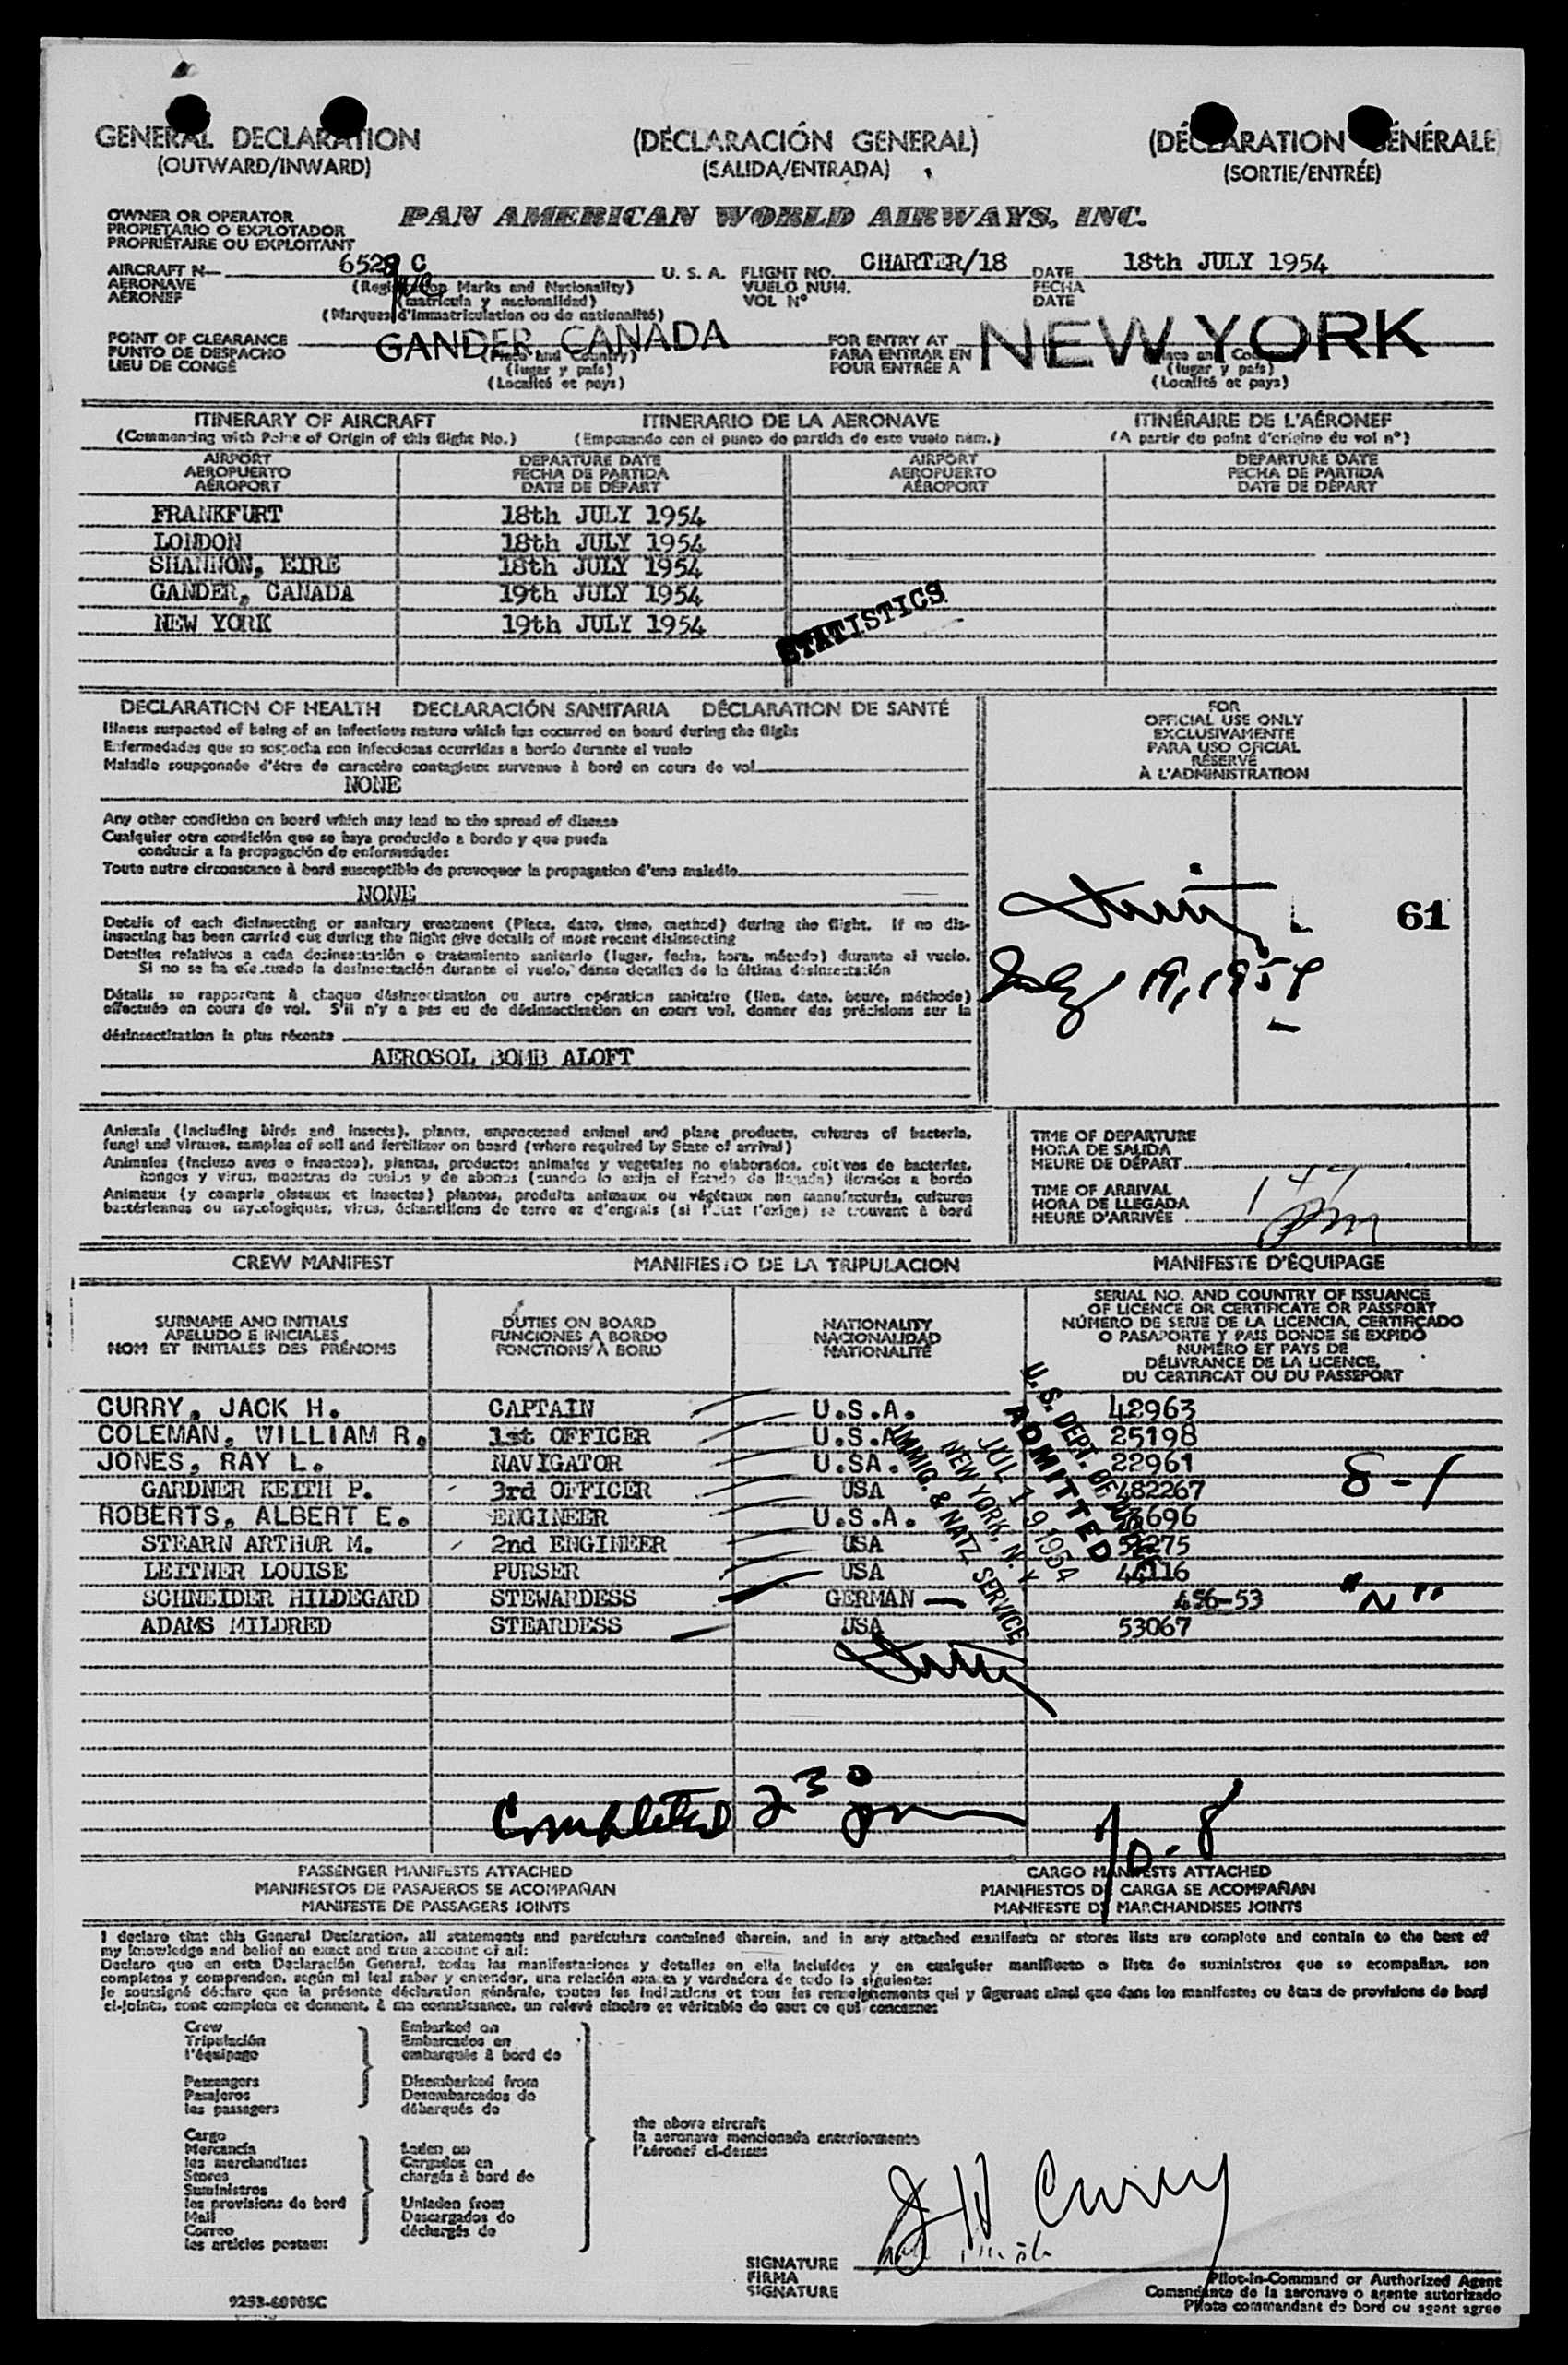 GENERAL DECLARATION (DECLARACIÓN GENERAL) (DÉCLARATION GÉNÉRALE)
(OUTWARD/INWARD) (SALIDA/ENTRADA) (SORTIE/ENTRÉE)
OWNER OR OPERATOR PAN AMERICAN WORLD AIRWAYS, INC.
PROPIETARIO O EXPLOTADOR
PROPRIÉTAIRE OU EXPLOITANT
AIRCRAFT N— 6529 C U. S. A. FLIGHT NO. CHARTER/18 DATE 18th JULY 1954
AERONAVE (Registration Marks and Nationality) VUELO NUM. FECHA
AÉRONEF (matrícula y nacionalidad) VOL Nº DATE
(Marques d'immatriculation ou de nationalité)
POINT OF CLEARANCE GANDER CANADA FOR ENTRY AT NEW YORK
PUNTO DE DESPACHO (Place and Country) PARA ENTRAR EN (Place and Country)
LIEU DE CONGÉ (lugar y país) POUR ENTRÉE A (lugar y país)
(Localité et pays) (Localité et pays)
ITINERARY OF AIRCRAFT ITINERARIO DE LA AERONAVE ITINÉRAIRE DE L'AÉRONEF
(Commencing with Point of Origin of this flight No.) (Empezando con el punto de partida de este vuelo núm.) (A partir du point d'origine du vol nº)
AIRPORT DEPARTURE DATE AIRPORT DEPARTURE DATE
AEROPUERTO FECHA DE PARTIDA AEROPUERTO FECHA DE PARTIDA
AÉROPORT DATE DE DÉPART AÉROPORT DATE DE DÉPART
FRANKFURT 18th JULY 1954
LONDON 18th JULY 1954
SHANNON, EIRE 18th JULY 1954
GANDER, CANADA 19th JULY 1954
NEW YORK 19th JULY 1954
STATISTICS
DECLARATION OF HEALTH DECLARACIÓN SANITARIA DÉCLARATION DE SANTÉ
Illness suspected of being of an infectious nature which has occurred on board during the flight
Enfermedades que se sospecha son infecciosas ocurridas a bordo durante el vuelo
Maladie soupçonnée d'être de caractère contagieux survenue à bord en cours de vol
NONE
Any other condition on board which may lead to the spread of disease
Cualquier otra condición que se haya producido a bordo y que pueda
conducir a la propagación de enfermedades
Toute autre circonstance à bord susceptible de provoquer la propagation d'une maladie
NONE
Details of each disinsecting or sanitary treatment (Place, date, time, method) during the flight. If no dis-
insecting has been carried out during the flight give details of most recent disinsecting
Detalles relativos a cada desinsectación o tratamiento sanitario (lugar, fecha, hora, método) durante el vuelo.
Si no se ha efectuado la desinsectación durante el vuelo, dense detalles de la última desinsectación
Détails se rapportant à chaque désinsectisation ou autre opération sanitaire (lieu, date, heure, méthode)
effectuée en cours de vol. S'il n'y a pas eu de désinsectisation en cours vol, donner des précisions sur la
désinsectisation la plus récente
AEROSOL BOMB ALOFT
FOR
OFFICIAL USE ONLY
EXCLUSIVAMENTE
PARA USO OFICIAL
RÉSERVÉ
À L'ADMINISTRATION
61
July 19, 1954
Animals (including birds and insects), plants, unprocessed animal and plant products, cultures of bacteria,
fungi and viruses, samples of soil and fertilizer on board (where required by State of arrival)
Animales (incluso aves e insectos), plantas, productos animales y vegetales no elaborados, cultivos de bacterias,
hongos y virus, muestras de suelos y de abonos (cuando lo exija el Estado de llegada) llevados a bordo
Animaux (y compris oiseaux et insectes) plantes, produits animaux ou végétaux non manufacturés, cultures
bactériennes ou mycologiques, virus, échantillons de terre et d'engrais (si l'État l'exige) se trouvant à bord
TIME OF DEPARTURE
HORA DE SALIDA
HEURE DE DÉPART
TIME OF ARRIVAL
HORA DE LLEGADA
HEURE D'ARRIVÉE
pm
CREW MANIFEST MANIFIESTO DE LA TRIPULACION MANIFESTE D'ÉQUIPAGE
SURNAME AND INITIALS
APELLIDO E INICIALES
NOM ET INITIALES DES PRÉNOMS
DUTIES ON BOARD
FUNCIONES A BORDO
FONCTIONS À BORD
NATIONALITY
NACIONALIDAD
NATIONALITÉ
SERIAL NO. AND COUNTRY OF ISSUANCE
OF LICENCE OR CERTIFICATE OR PASSPORT
NÚMERO DE SERIE DE LA LICENCIA, CERTIFICADO
O PASAPORTE Y PAIS DONDE SE EXPIDÓ
NUMÉRO ET PAYS DE
DÉLIVRANCE DE LA LICENCE,
DU CERTIFICAT OU DU PASSEPORT
CURRY, JACK H. CAPTAIN U.S.A. 42963
COLEMAN, WILLIAM R. 1st OFFICER U.S.A. 25198
JONES, RAY L. NAVIGATOR U.SA. 22961
GARDNER KEITH P. 3rd OFFICER USA 482267 8-1
ROBERTS, ALBERT E. ENGINEER U.S.A.
STEARN ARTHUR M. 2nd ENGINEER USA
LEITNER LOUISE PURSER USA 44116
SCHNEIDER HILDEGARD STEWARDESS GERMAN 456-53 "N"
ADAMS MILDRED STEARDESS USA 53067
U.S. DEPT. OF
ADMITTED
JUL 19 1954
NEW YORK, N. Y
IMMIG. & NATZ. SERVICE
Completed 2 30 pm
PASSENGER MANIFESTS ATTACHED CARGO MANIFESTS ATTACHED
MANIFIESTOS DE PASAJEROS SE ACOMPAÑAN MANIFIESTOS DE CARGA SE ACOMPAÑAN
MANIFESTE DE PASSAGERS JOINTS MANIFESTE DE MARCHANDISES JOINTS
I declare that this General Declaration, all statements and particulars contained therein, and in any attached manifests or stores lists are complete and contain to the best of
my knowledge and belief an exact and true account of all:
Declaro que en esta Declaración General, todas las manifestaciones y detalles en ella incluídos y en cualquier manifiesto o lista de suministros que se acompañan, son
completos y comprenden, según mi leal saber y entender, una relación exacta y verdadera de todo lo siguiente:
Je soussigné déclare que la présente déclaration générale, toutes les indications et tous les renseignements qui y figurent ainsi que dans les manifestes ou états de provisions de bord
ci-joints, sont complets et donnent, à ma connaissance, un relevé sincère et véritable de tout ce qui concerne:
Crew Embarked on
Tripulación Embarcados en
l'équipage embarqués à bord de
Passengers Disembarked from
Pasajeros Desembarcados de
les passagers débarqués de
the above aircraft
la aeronave mencionada anteriormente
l'aéronef ci-dessus
Cargo
Mercancía Laden on
les marchandises Cargados en
Stores chargés à bord de
Suministros
les provisions de bord Unladen from
Mail Descargados de
Correo déchargés de
les articles postaux
J H Curry
SIGNATURE
FIRMA
SIGNATURE
Pilot-in-Command or Authorized Agent
Comandante de la aeronave o agente autorizado
Pilote commandant de bord ou agent agree
9253-60905C